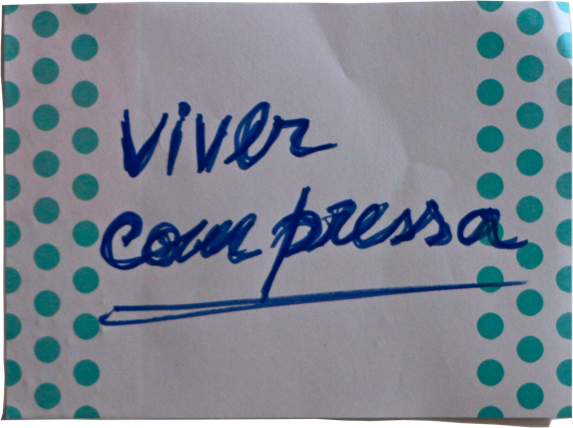 viver
com pressa